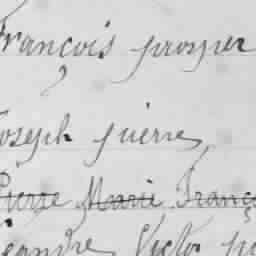 François prosper
Joseph pierre
Pierre Marie Franç
éandre Victor pi